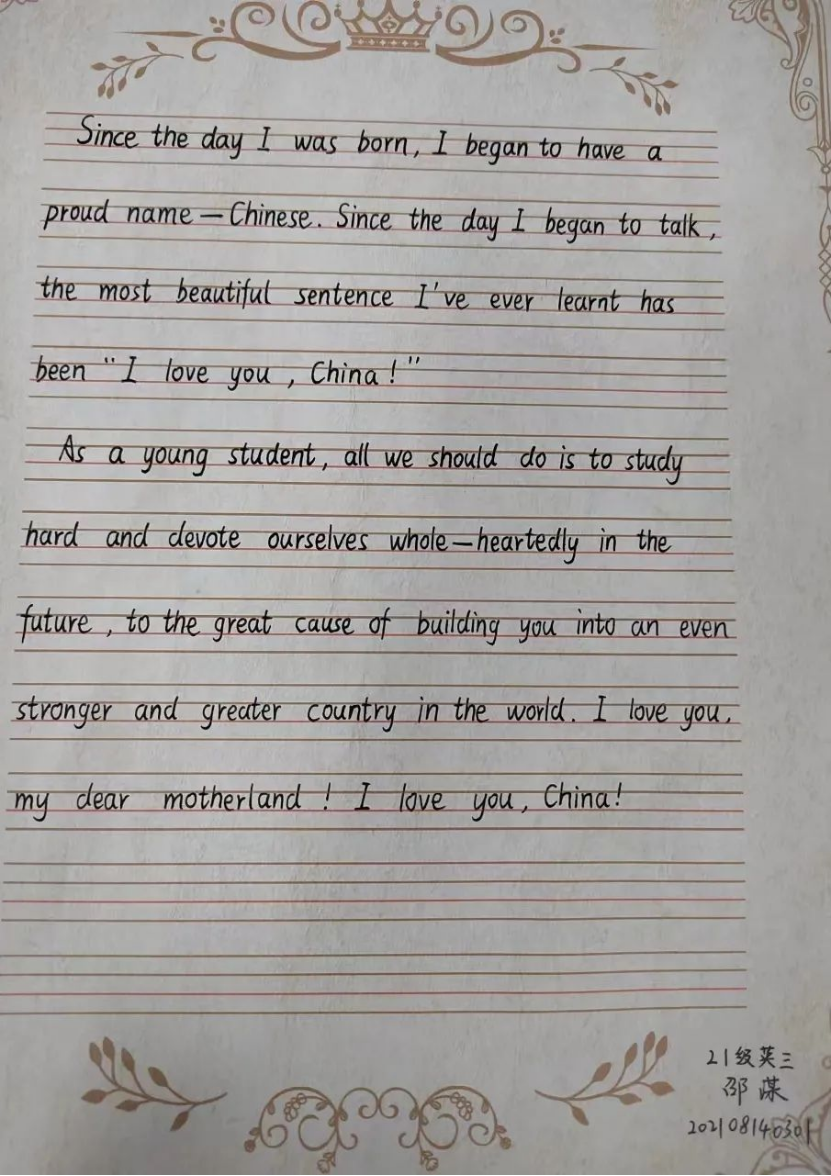 Since the day I was born, I began to have a
proud name — Chinese. Since the day I began to talk,
the most beautiful sentence I've ever learnt has
been "I love you, China!"
As a young student, all we should do is to study
hard and devote ourselves whole-heartedly in the
future, to the great cause of building you into an even
stronger and greater country in the world. I love you,
my dear motherland! I love you, China!
21级英三
邵葆
202108140301